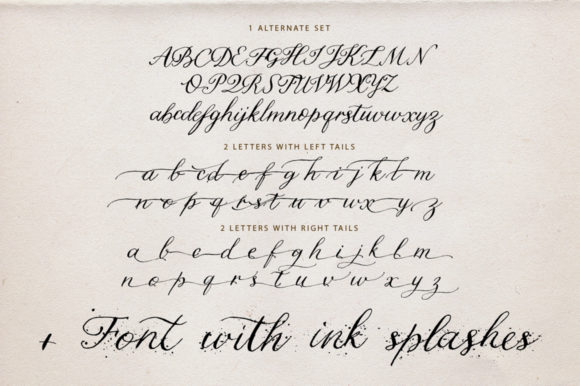 1 ALTERNATE SET
ABCDEFGHIJKLMN
OPQRSTUVWXYZ
abcdefghijklmnopqrstuvwxyz
2 LETTERS WITH LEFT TAILS
a b c d e f g h i j k l m
n o p q r s t u v w x y z
2 LETTERS WITH RIGHT TAILS
a b c d e f g h i j k l m
n o p q r s t u v w x y z
+ Font with ink splashes